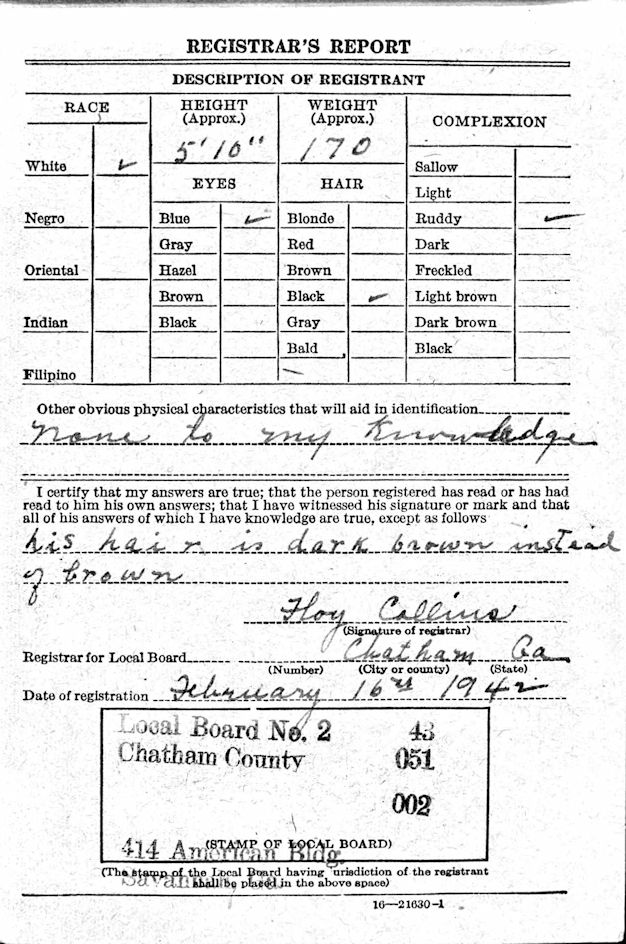 REGISTRAR'S REPORT
DESCRIPTION OF REGISTRANT
RACE
HEIGHT
(Approx.)
WEIGHT
(Approx.)
COMPLEXION
5' 10"
170
White ✓
Sallow
EYES
HAIR
Light
Negro
Blue ✓
Blonde
Ruddy ✓
Gray
Red
Dark
Oriental
Hazel
Brown
Freckled
Brown
Black ✓
Light brown
Indian
Black
Gray
Dark brown
Bald
Black
Filipino
Other obvious physical characteristics that will aid in identification
none to my knowledge
I certify that my answers are true; that the person registered has read or has had
read to him his own answers; that I have witnessed his signature or mark and that
all of his answers of which I have knowledge are true, except as follows
his hair is dark brown instead
of brown
Floy Collins
(Signature of registrar)
Registrar for Local Board Chatham Ga
(Number) (City or county) (State)
Date of registration February 16th 1942
Local Board No. 2 43
Chatham County 051
002
(STAMP OF LOCAL BOARD)
414 American Bldg.
(The stamp of the Local Board having jurisdiction of the registrant
shall be placed in the above space)
Savannah, Ga.
16—21630-1